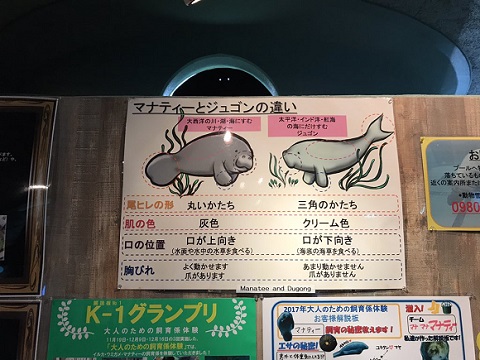 マナティーとジュゴンの違い
大西洋の川・湖・海にすむ
マナティー
太平洋・インド洋・紅海
の海にだけすむ
ジュゴン
尾ヒレの形 丸いかたち 三角のかたち
肌の色 灰色 クリーム色
口の位置 口が上向き 口が下向き
(水面や水中の水草を食べる) (海底の海草を食べる)
胸びれ よく動かせます あまり動かせません
爪があります 爪がありません
Manatee and Dugong
K-1グランプリ
大人のための飼育係体験
2017年大人のための飼育係体験
お客様解説板
マナティー 飼育の秘密教えます!
エサの秘密!
潜入!
チーム
マナティ
お
プールへ
落ちているもの
近くの案内所また
0980